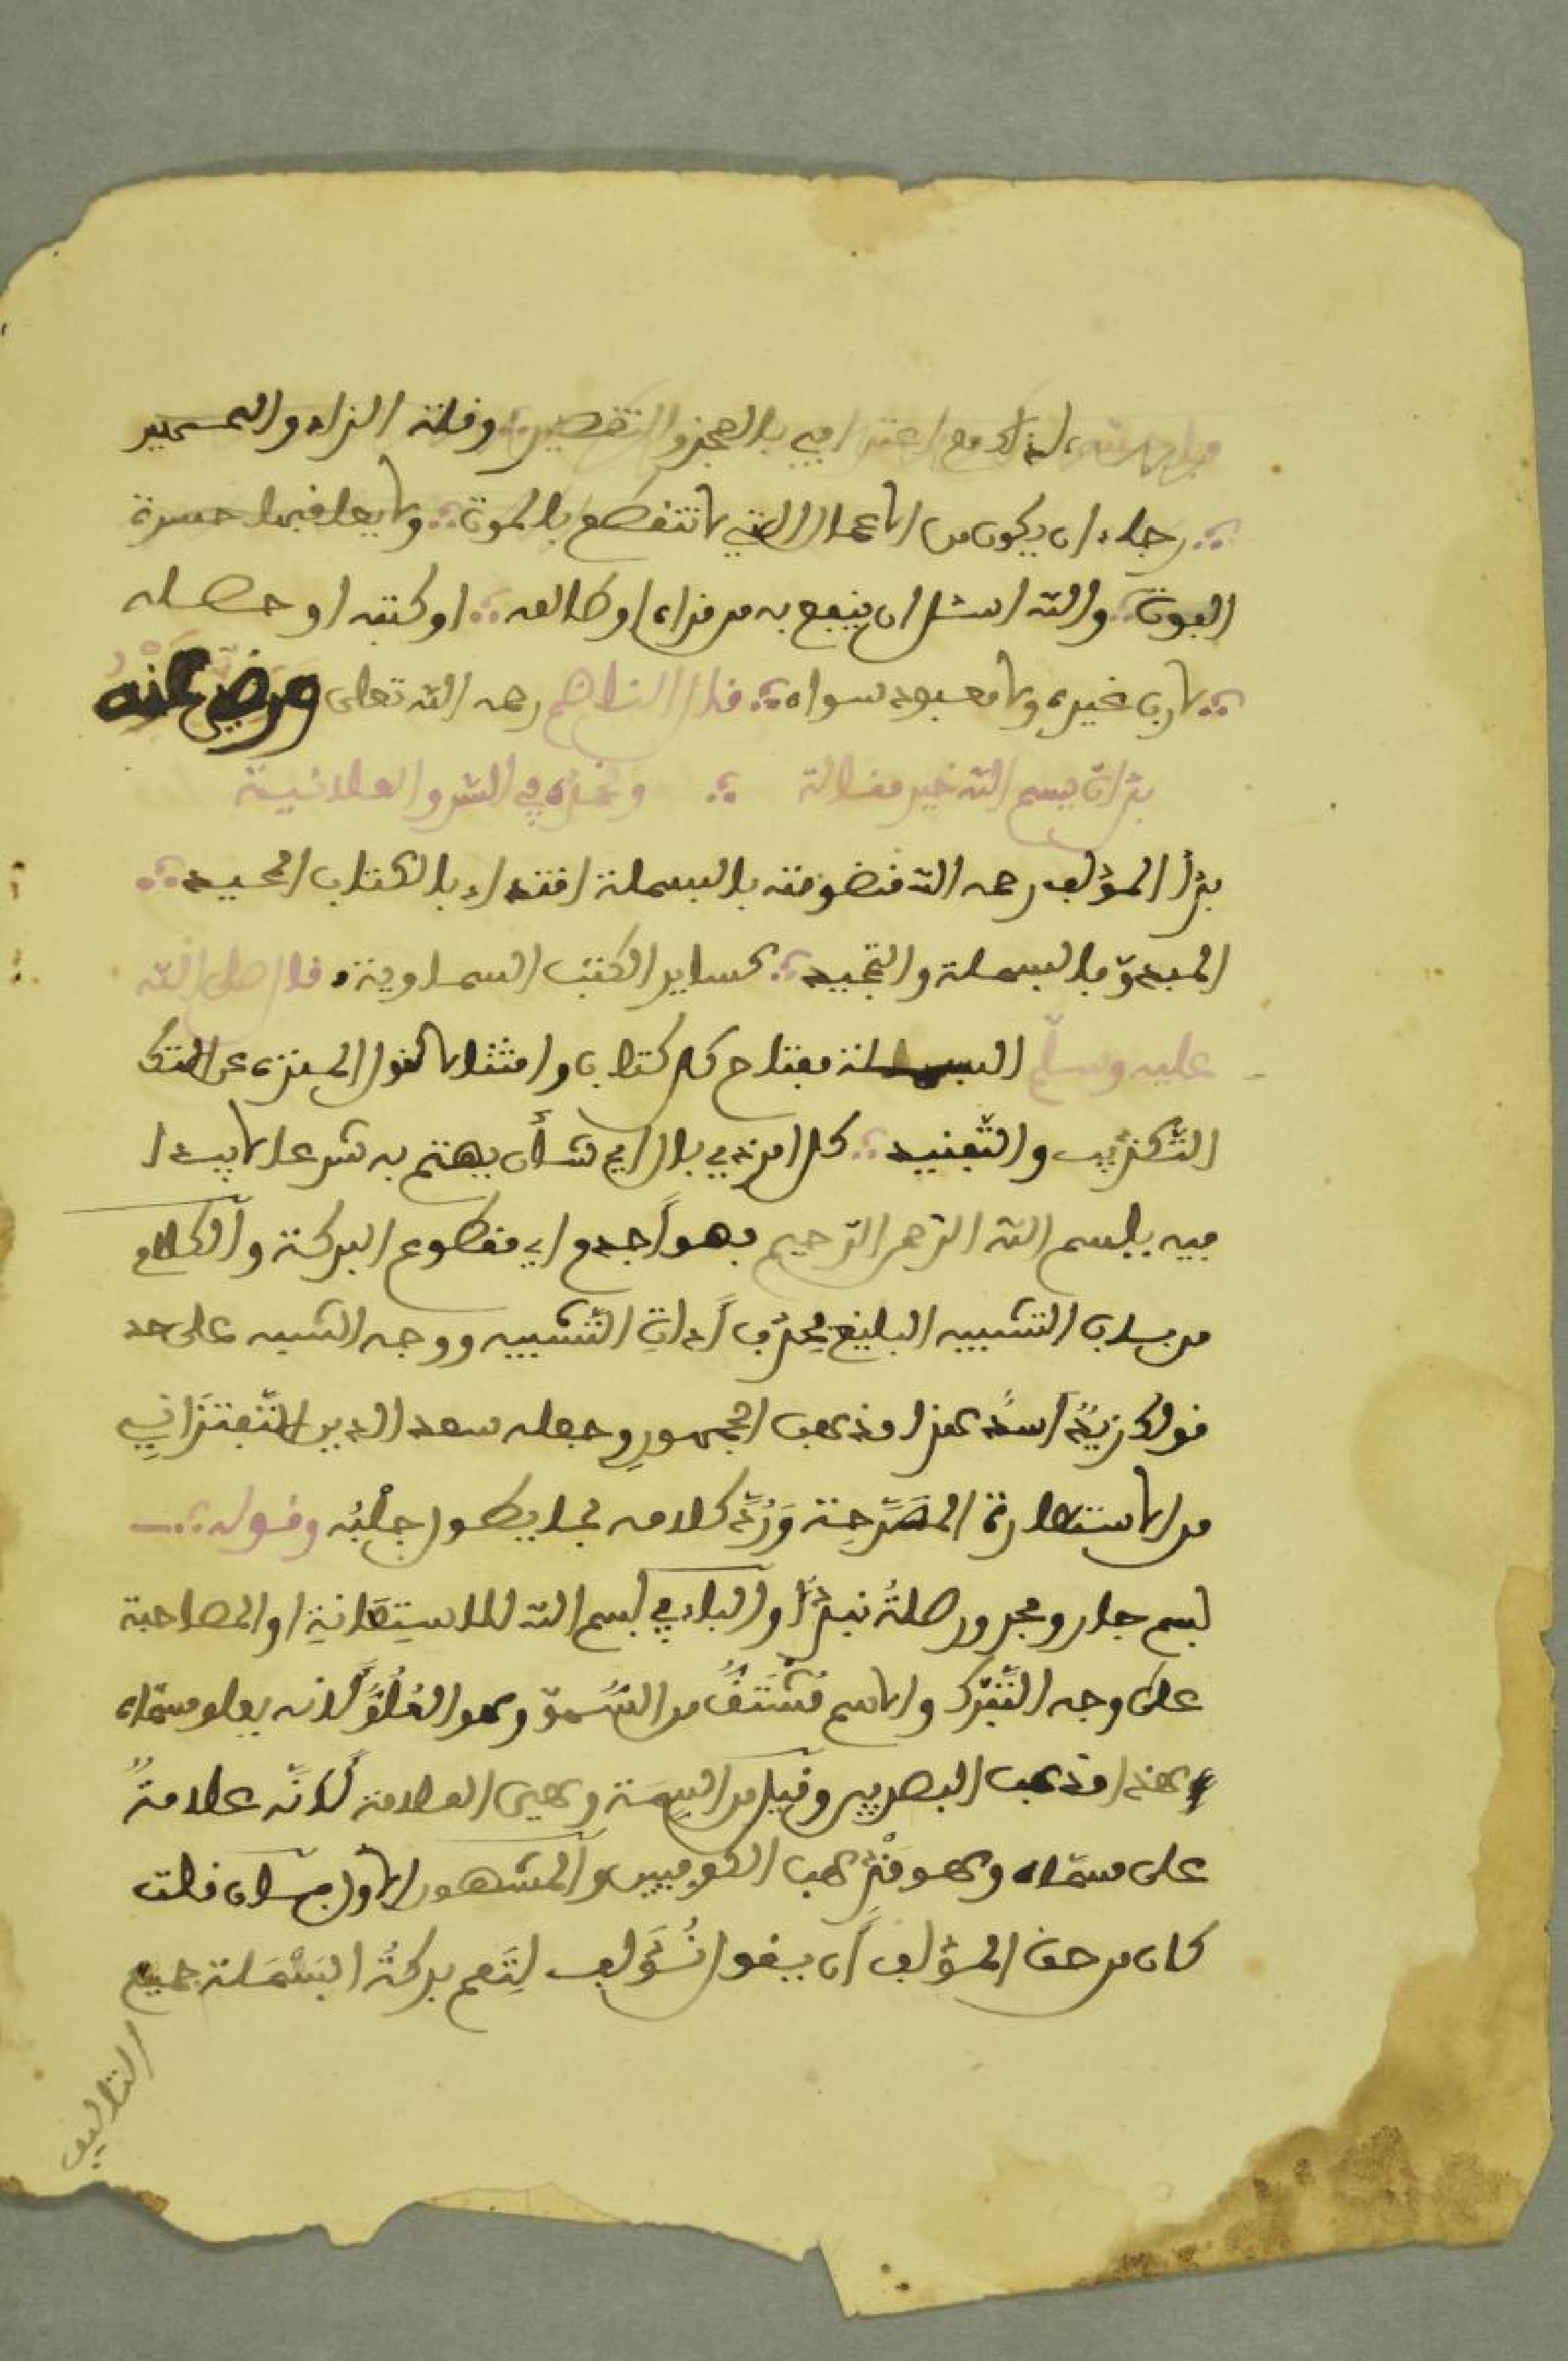 لذلك مع اعترافي بالعجز والتقصير وقلة الزاد والتحصيل
رجاء ان يكون من الاعمال التي لا تنقطع بالموت ولا يعاقبها حسرة
الفوت والله اسئل ان ينفع به من قراه او طالعه او كتبه او حصله
لا رب غيره ولا معبود سواه قال الناظم رحمه الله تعالى ورضي عنه
بدأت ببسم الله خير مقالة وحمده في السر والعلانية
بدأ المؤلف رحمه الله منظومته بالبسملة اقتداء بالكتاب المجيد
المبدوّ بالبسملة والتحميد كساير الكتب السماوية قال صلى الله
عليه وسلم البسملة مفتاح كل كتاب وامتثالا لقول المنزه عن
التّكذيب والتّفنيد كل امر ذي بال اي شأن يهتم به شرعا لا يبدا
فيه ببسم الله الرحمن الرّحيم فهو أجذم اي مقطوع البركة والكلام
من باب التشبيه البليغ بحذف أداتِ التّشبيه ووجه الشبه على حد
قولك زيدٌ أسدٌ هذا مذهب الجمهورِ وجعله سعد الدين التّفتزاني
من الاستعارة المصَرّحة وَرُدّ كلامه بما يطول جلْبُه وقوله
بسم جار ومجرور صلةُ نبدأُ والباء في بسم الله للاستعانةِ او المصاحبة
على وجه التّبرّك والاسم مُشْتَقٌّ من السُّموّ وهو العُلُوُّ لانه يعلو مسمّاه
هذا مذهب البصريين وقيل من السِمَة وهي العلامة لأنّه علامةٌ
على مسمّاه وهو مذْهب الكوفيين والمشهور الاول فان قلت
كان من حق المؤلف أن يقول نُؤَلف لِتَعم بركةُ البَسْمَلة جميع
التاليف